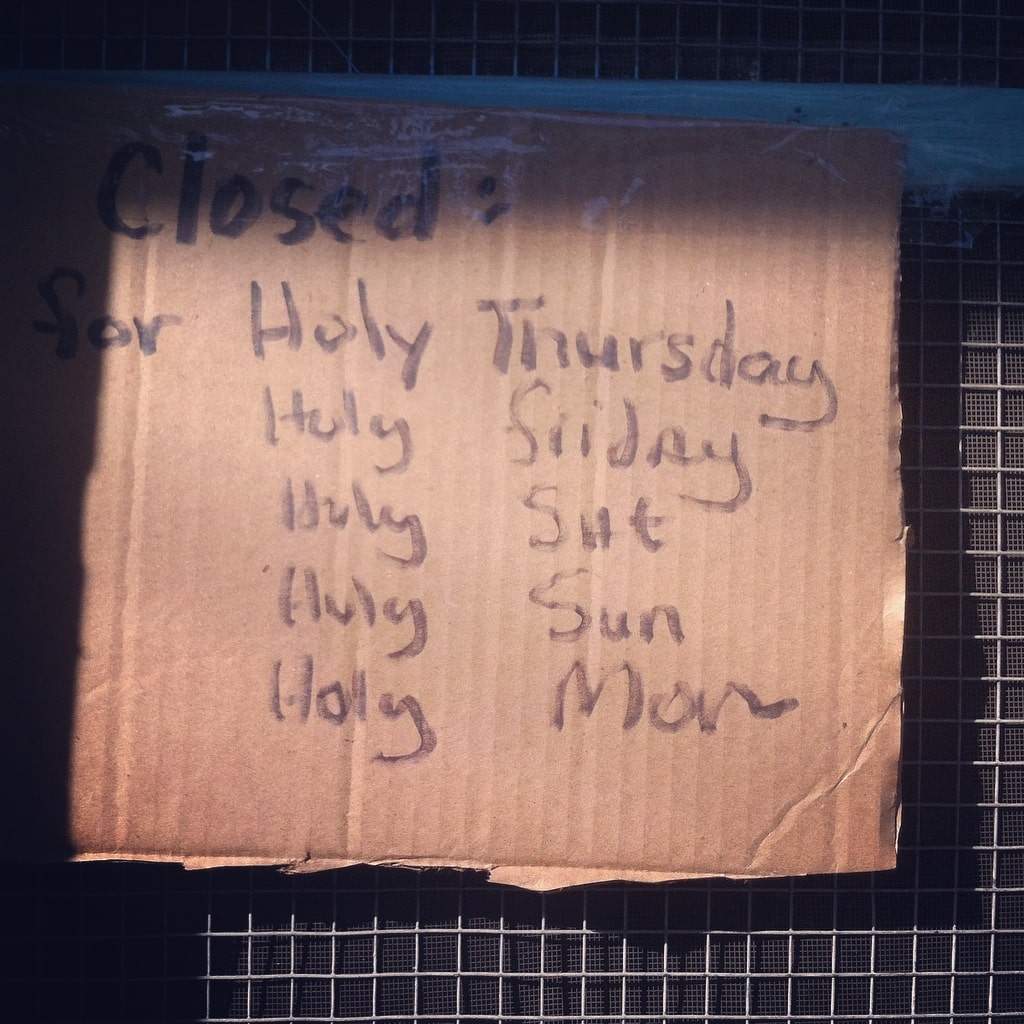 Closed:
for Holy Thursday
Holy Friday
Holy Sat
Holy Sun
Holy Mon